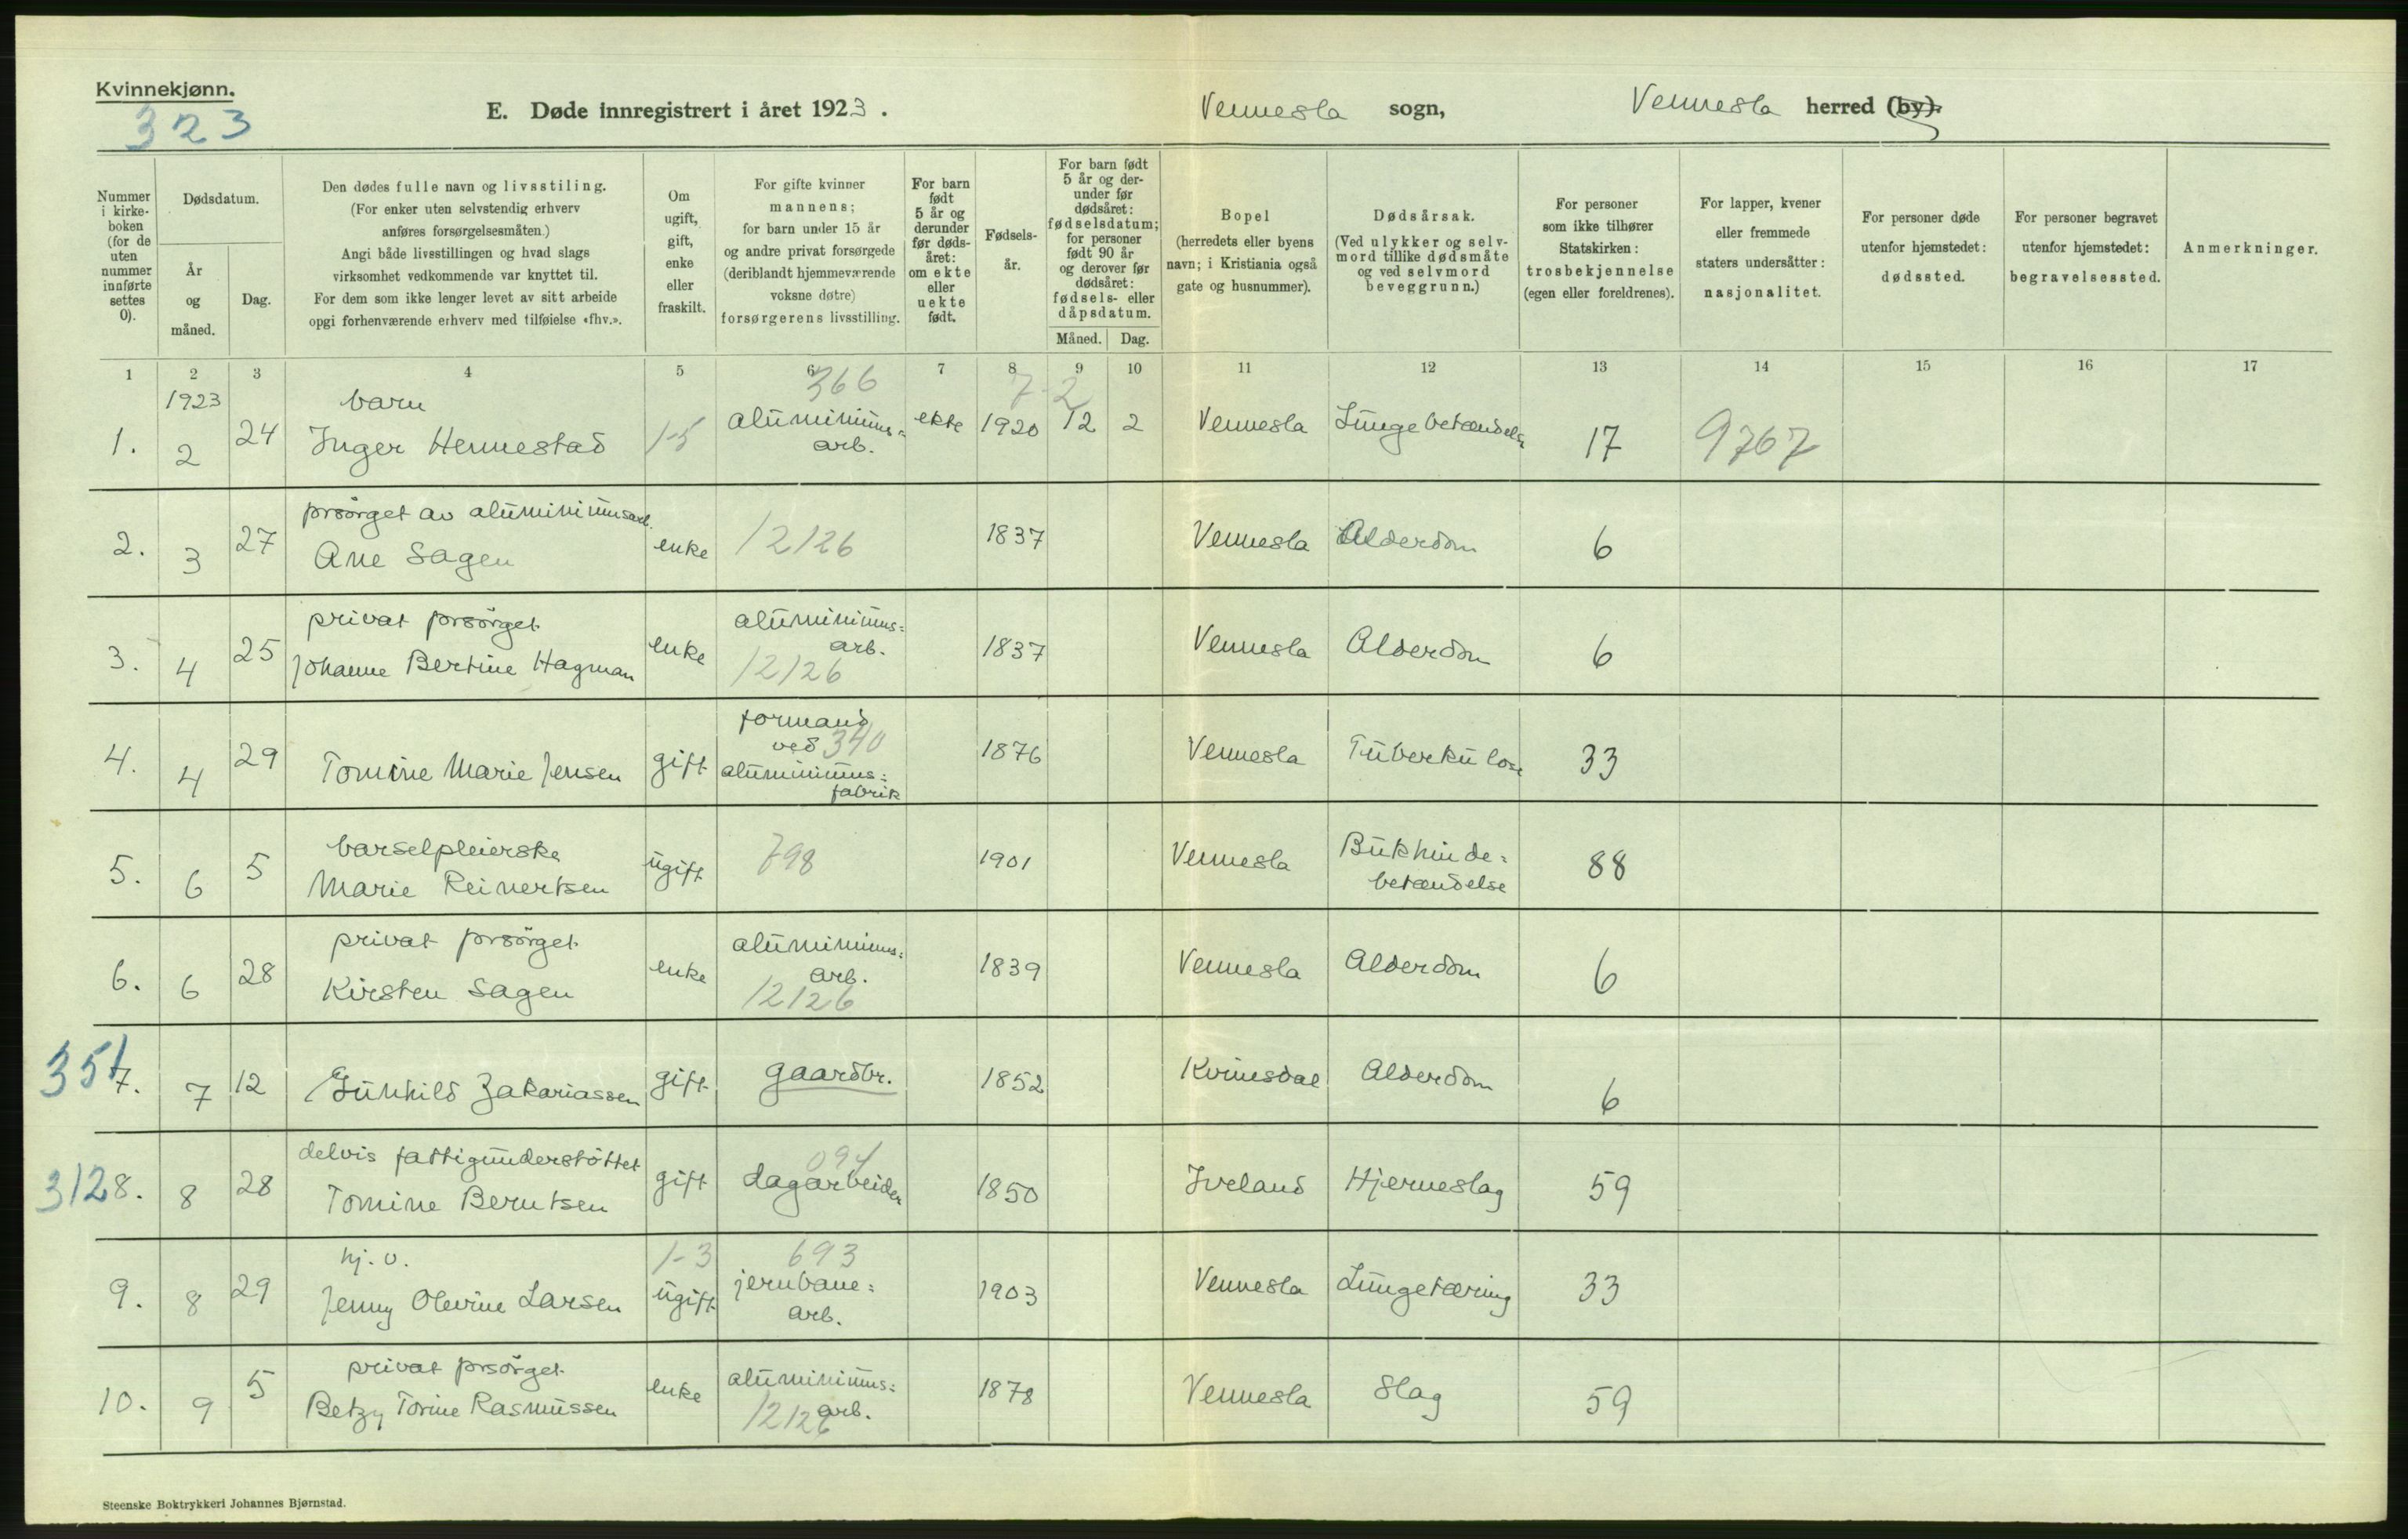 Kvinnekjønn.
323
E. Døde innregistrert i året 1923.
Vennesla sogn,
Vennesla herred (by).
Nummer i kirkeboken (for de uten nummer innførte settes 0).
Dødsdatum.
År og måned.
Dag.
Den dødes fulle navn og livsstiling.
(For enker uten selvstendig erhverv
anføres forsørgelsesmåten.)
Angi både livsstillingen og hvad slags
virksomhet vedkommende var knyttet til.
For dem som ikke lenger levet av sitt arbeide
opgi forhenværende erhverv med tilføielse «fhv.».
Om ugift, gift, enke eller fraskilt.
For gifte kvinner
mannens;
for barn under 15 år
og andre privat forsørgede
(deriblandt hjemmeværende
voksne døtre)
forsørgerens livsstilling.
For barn født 5 år og derunder før dødsåret: om ekte eller uekte født.
Fødselsår.
For barn født 5 år og derunder før dødsåret: fødselsdatum; for personer født 90 år og derover før dødsåret: fødsels- eller dåpsdatum.
Måned. Dag.
Bopel
(herredets eller byens
navn; i Kristiania også
gate og husnummer).
Dødsårsak.
(Ved ulykker og selvmord tillike dødsmåte
og ved selvmord
beveggrunn.)
For personer
som ikke tilhører
Statskirken:
trosbekjennelse
(egen eller foreldrenes).
For lapper, kvener
eller fremmede
staters undersåtter:
nasjonalitet.
For personer døde
utenfor hjemstedet:
dødssted.
For personer begravet
utenfor hjemstedet:
begravelsessted.
Anmerkninger.
1 2 3 4 5 6 7 8 9 10 11 12 13 14 15 16 17
1923 barn 366 7-2
1. 2 24 Inger Hennestad 1-5 aluminiums= arb. ekte 1920 12 2 Vennesla Lungebetændelse 17 9767
forsørget av aluminiumsarb.
2. 3 27 Ane Sagen enke 12126 1837 Vennesla Alderdom 6
privat forsørget
3. 4 25 Johanne Bertine Hagman enke aluminiums= arb. 12126 1837 Vennesla Alderdom 6
4. 4 29 Tomine Marie Jensen gift formand ved 340 aluminiums= fabrik 1876 Vennesla Tuberkulose 33
barselpleierske
5. 6 5 Marie Reinertsen ugift 798 1901 Vennesla Bukhinde= betændelse 88
privat forsørget
6. 6 28 Kirsten Sagen enke aluminiums= arb. 12126 1839 Vennesla Alderdom 6
351
7. 7 12 Gunhild Zakariassen gift gaardbr. 1852 Kvinesdal Alderdom 6
delvis fattigunderstøttet 094
312 8. 8 28 Tomine Berntsen gift dagarbeider 1850 Iveland Hjerneslag 59
hj. v. 1-3 693
9. 8 29 Jenny Olevine Larsen ugift jernbane= arb. 1903 Vennesla Lungetæring 33
privat forsørget
10. 9 5 Betzy Torine Rasmussen enke aluminiums= arb. 12126 1878 Vennesla Slag 59
Steenske Boktrykkeri Johannes Bjørnstad.